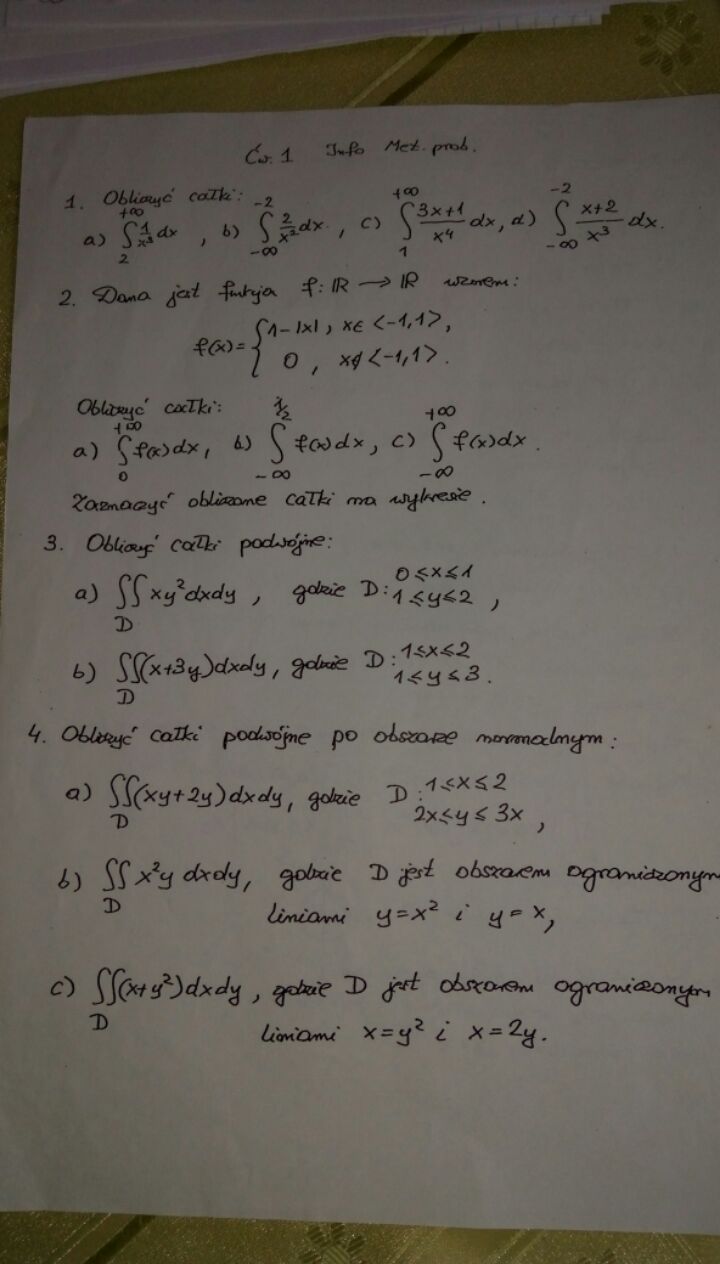 Ćw. 1 Info Met. prob.
1. Obliczyć całki:
a) ∫₂^{+∞} 1/x³ dx , b) ∫_{-∞}^{-2} 2/x² dx , c) ∫₁^{+∞} (3x+1)/x⁴ dx, d) ∫_{-∞}^{-2} (x+2)/x³ dx.
2. Dana jest funkcja f: ℝ → ℝ wzorem:
f(x) = { 1-|x| , x∈ <-1,1>,
0 , x∉ <-1,1>.
Obliczyć całki:
a) ∫₀^{+∞} f(x)dx, b) ∫_{-∞}^{1/2} f(x)dx, c) ∫_{-∞}^{+∞} f(x)dx.
Zaznaczyć obliczone całki na wykresie.
3. Obliczyć całki podwójne:
a) ∬_D xy²dxdy , gdzie D: 0≤x≤1
1≤y≤2 ,
b) ∬_D (x+3y)dxdy, gdzie D: 1≤x≤2
1≤y≤3.
4. Obliczyć całki podwójne po obszarze normalnym:
a) ∬_D (xy+2y)dxdy, gdzie D: 1≤x≤2
2x≤y≤3x ,
b) ∬_D x²y dxdy, gdzie D jest obszarem ograniczonym
liniami y=x² i y=x,
c) ∬_D (x+y²)dxdy, gdzie D jest obszarem ograniczonym
liniami x=y² i x=2y.